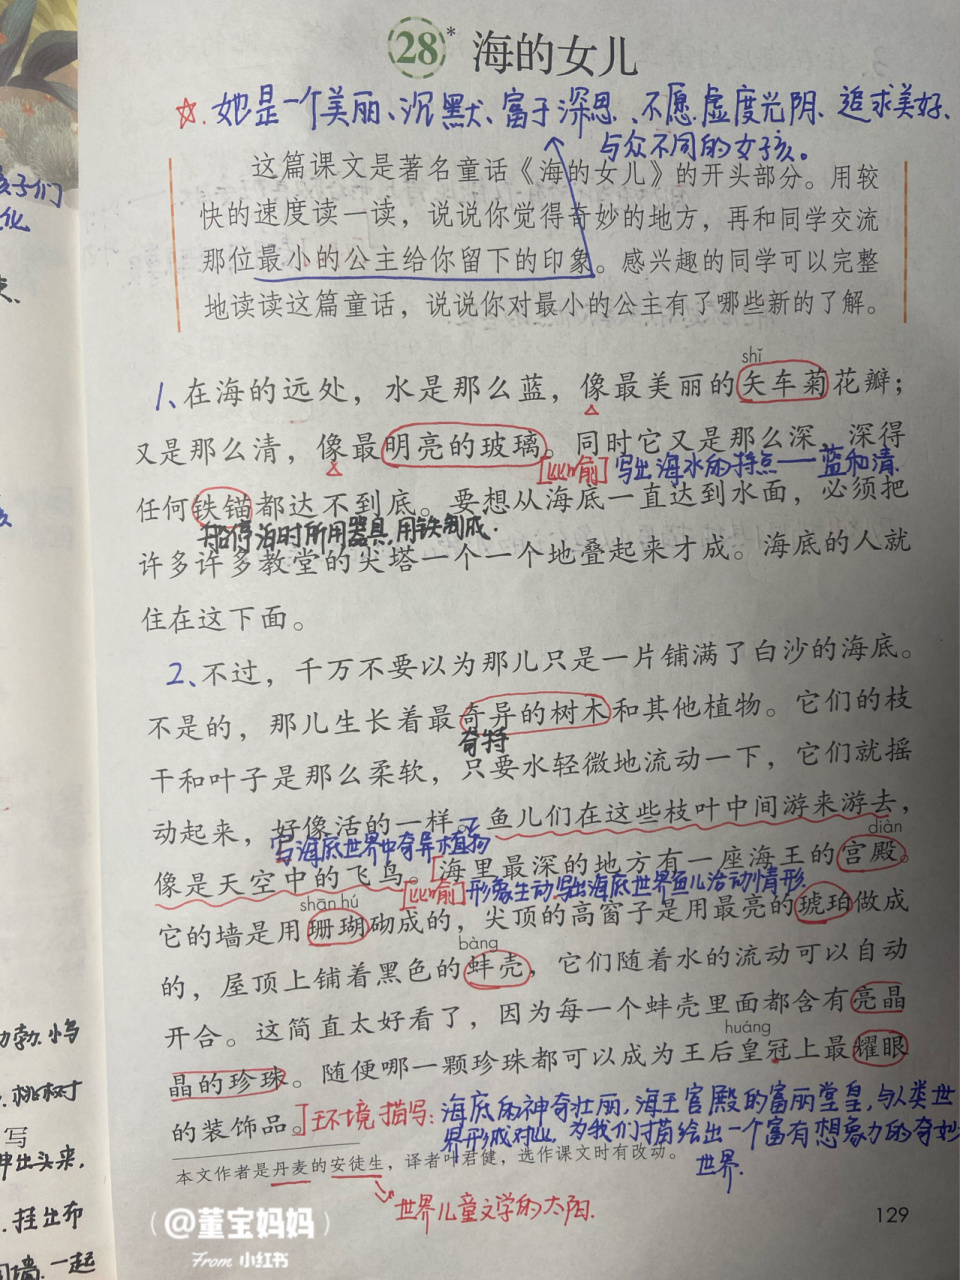 28* 海的女儿
☆.她是一个美丽、沉默、富于深思、不愿虚度光阴、追求美好、
与众不同的女孩。
这篇课文是著名童话《海的女儿》的开头部分。用较
快的速度读一读，说说你觉得奇妙的地方，再和同学交流
那位最小的公主给你留下的印象。感兴趣的同学可以完整
地读读这篇童话，说说你对最小的公主有了哪些新的了解。
shǐ
1、在海的远处，水是那么蓝，像最美丽的矢车菊花瓣；
又是那么清，像最明亮的玻璃。同时它又是那么深，深得
[比喻]写出海水的特点——蓝和清.
任何铁锚都达不到底。要想从海底一直达到水面，必须把
船停泊时所用器具,用铁制成.
许多许多教堂的尖塔一个一个地叠起来才成。海底的人就
住在这下面。
2、不过，千万不要以为那儿只是一片铺满了白沙的海底。
不是的，那儿生长着最奇异的树木和其他植物。它们的枝
奇特
干和叶子是那么柔软，只要水轻微地流动一下，它们就摇
动起来，好像活的一样。鱼儿们在这些枝叶中间游来游去，
写海底世界中奇异植物
diàn
像是天空中的飞鸟。[海里最深的地方有一座海王的宫殿。
[比喻]形象生动写出海底世界鱼儿活动情形.
shān hú
它的墙是用珊瑚砌成的，尖顶的高窗子是用最亮的琥珀做成
bàng
的，屋顶上铺着黑色的蚌壳，它们随着水的流动可以自动
开合。这简直太好看了，因为每一个蚌壳里面都含有亮晶
huáng
晶的珍珠。随便哪一颗珍珠都可以成为王后皇冠上最耀眼
的装饰品。]环境描写:海底的神奇壮丽,海王宫殿的富丽堂皇,与人类世
界形成对比,为我们描绘出一个富有想象力的奇妙
世界.
本文作者是丹麦的安徒生，译者叶君健，选作课文时有改动。
世界儿童文学的太阳.
129
孩子们
化
勃.小鸟
.桃树
写
伸出头来,
.挂出布
墙.一起
@董宝妈妈
From 小红书